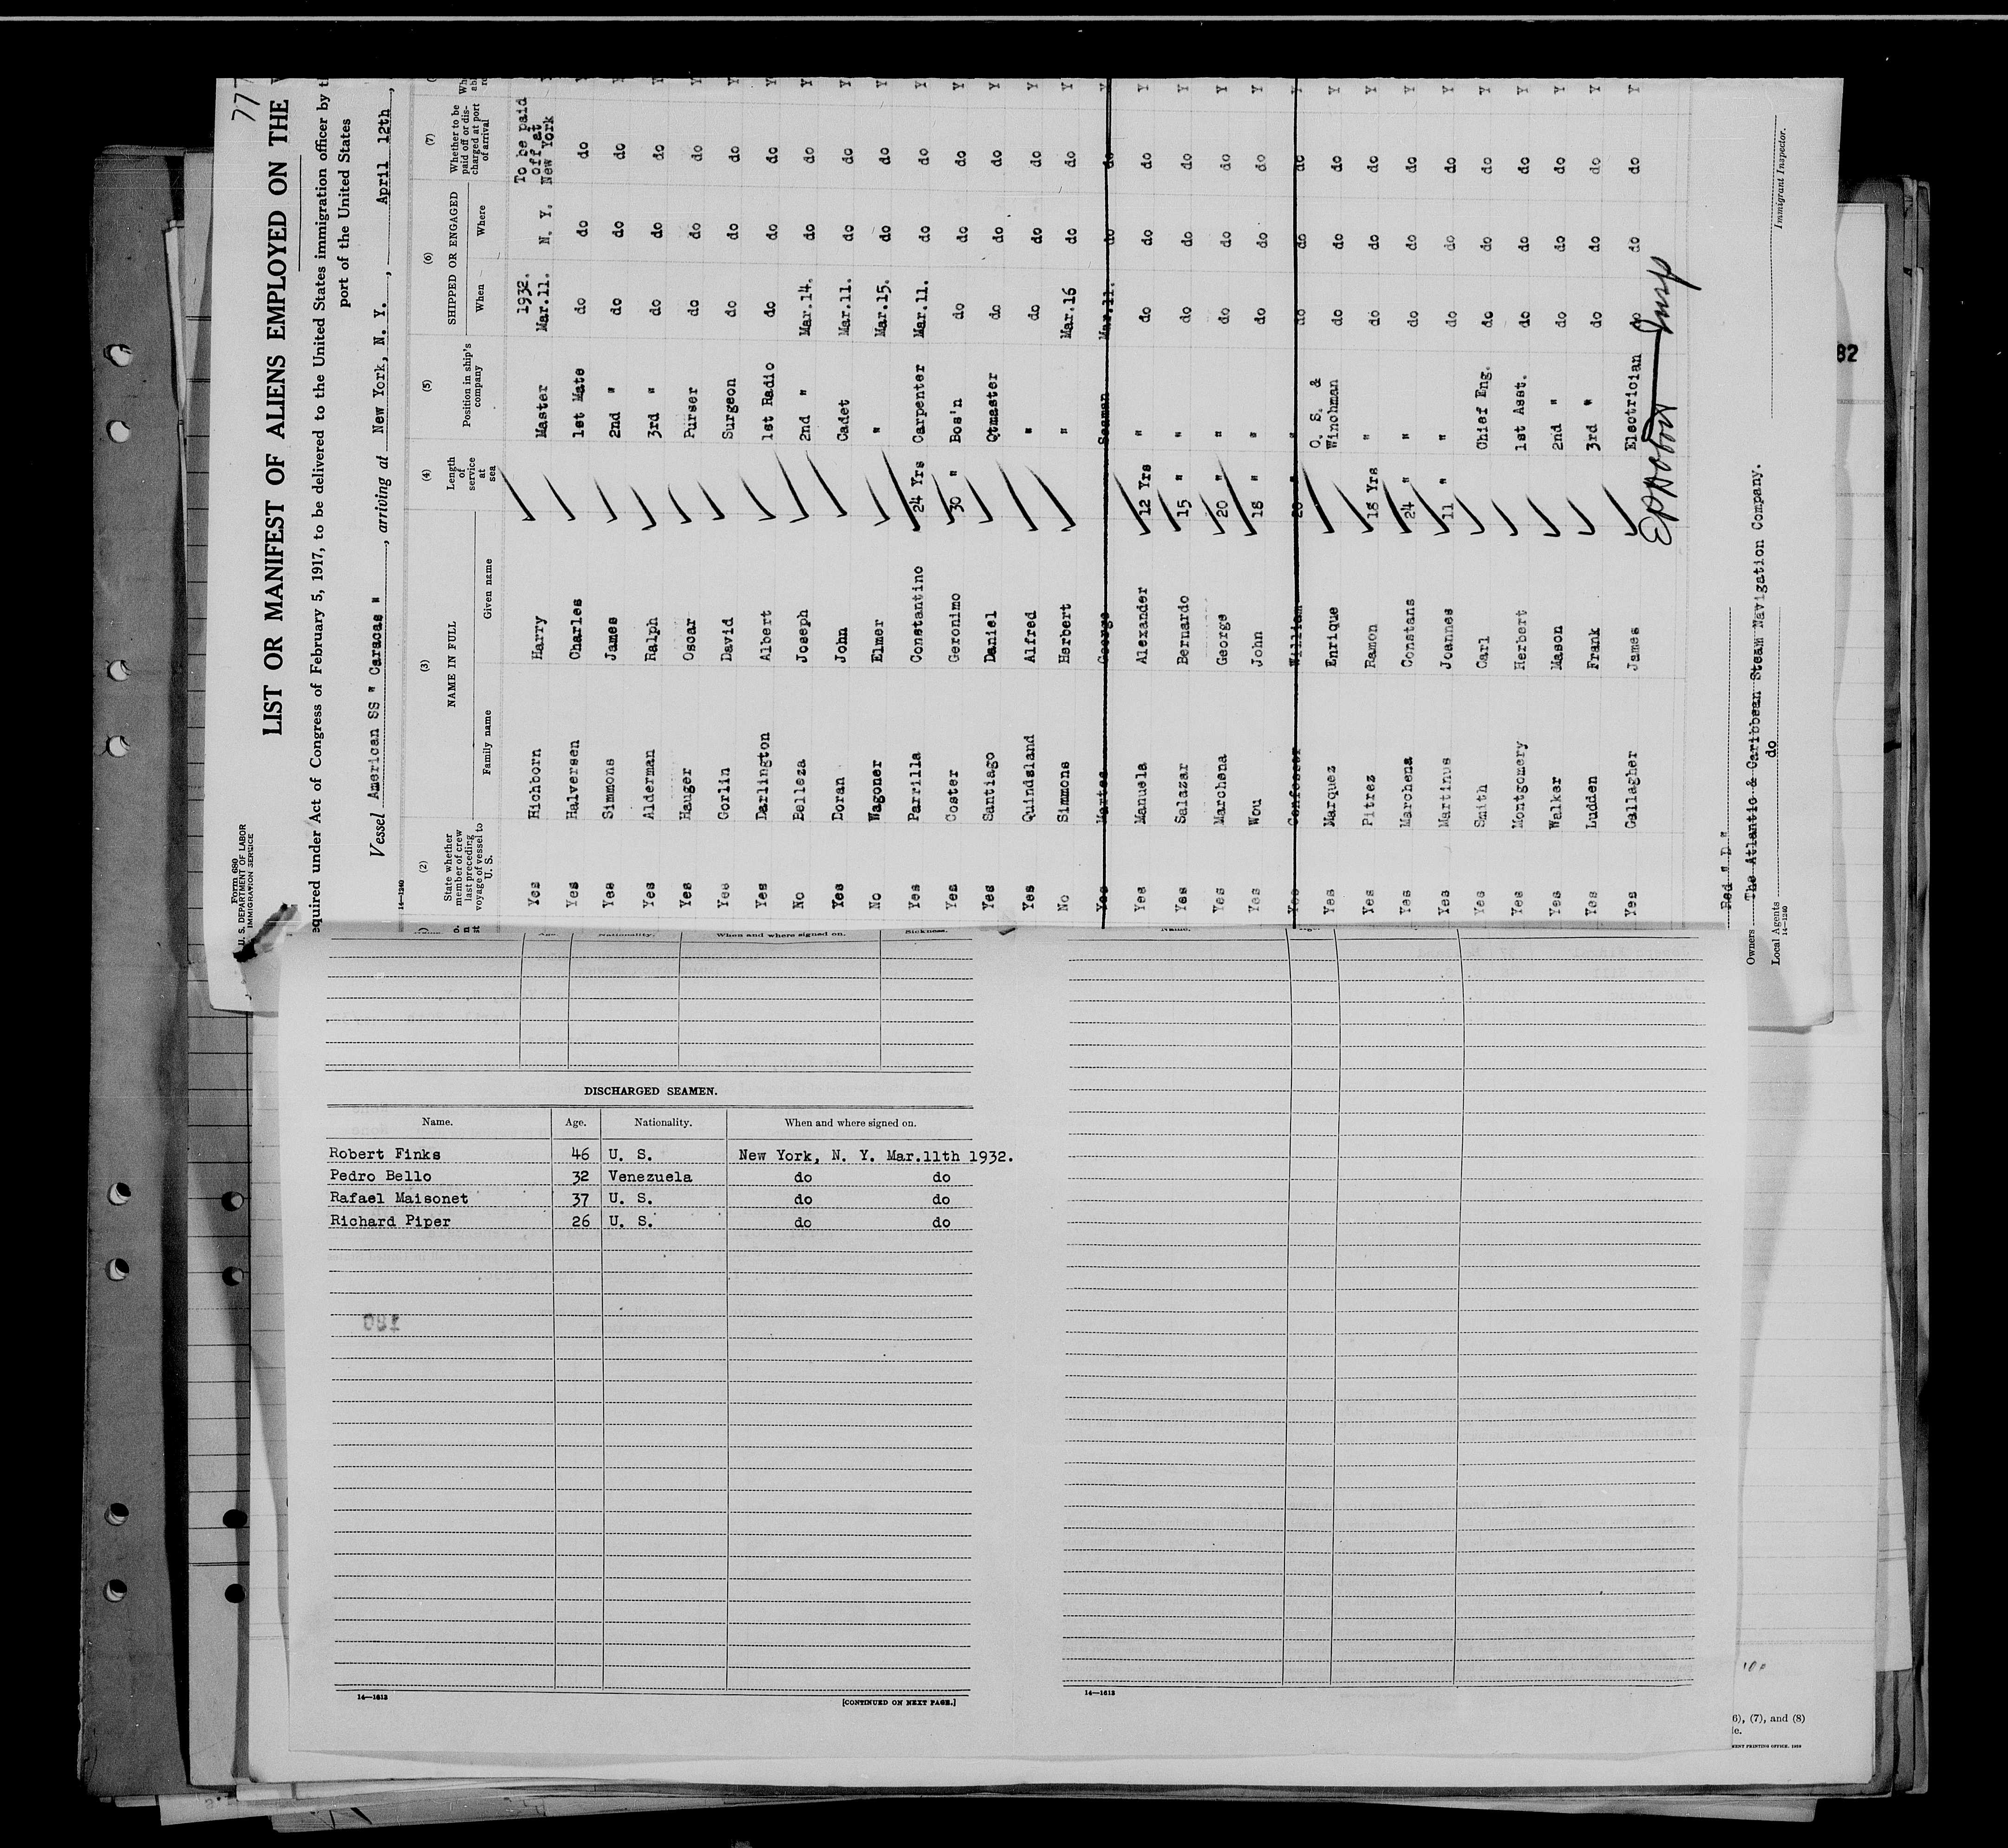 777
Form 680
U. S. DEPARTMENT OF LABOR
IMMIGRATION SERVICE
LIST OR MANIFEST OF ALIENS EMPLOYED ON THE
equired under Act of Congress of February 5, 1917, to be delivered to the United States immigration officer by
port of the United States
Vessel American SS " Caracas " , arriving at New York, N. Y. , April 12th ,
14-1240
(2) (3) (4) (5) (6) (7)
State whether member of crew last preceding voyage of vessel to U. S. NAME IN FULL Family name Given name Length of service at sea Position in ship's company SHIPPED OR ENGAGED When Where Whether to be paid off or discharged at port of arrival
Yes Hichborn Harry Master 1932. Mar.11. N. Y. To be paid off at New York Y
Yes Halversen Charles 1st Mate do do do Y
Yes Simmons James 2nd " do do do Y
Yes Alderman Ralph 3rd " do do do Y
Yes Hauger Oscar Purser do do do Y
Yes Gorlin David Surgeon do do do Y
Yes Darlington Albert 1st Radio do do do Y
No Belleza Joseph 2nd " Mar.14. do do Y
Yes Doran John Cadet Mar.11. do do Y
No Wagoner Elmer " Mar.15. do do Y
Yes Parrilla Constantino 24 Yrs Carpenter Mar.11. do do Y
Yes Coster Geronimo 30 " Bos'n do do do Y
Yes Santiago Daniel Qtmaster do do do Y
Yes Quindsland Alfred " do do do Y
No Simmons Herbert " Mar.16 do do Y
Yes George Seaman Mar.11. do do Y
Yes Manuela Alexander 12 Yrs " do do do Y
Yes Salazar Bernardo 15 " " do do do Y
Yes Marchena George 20 " " do do do Y
Yes Wou John 18 " " do do do Y
Yes Confesser William 20 " " do do do Y
Yes Marquez Enrique O. S. & Winchman do do do Y
Yes Pitrez Ramon 18 Yrs " do do do Y
Yes Marchena Constans 24 " " do do do Y
Yes Martinus Joannes 11 " " do do do Y
Yes Smith Carl Chief Eng. do do do Y
Yes Montgomery Herbert 1st Asst. do do do Y
Yes Walker Mason 2nd " do do do Y
Yes Ludden Frank 3rd " do do do Y
Yes Gallagher James Electrician do do do Y
Insp
Red " D "
Owners The Atlantic & Caribbean Steam Navigation Company.
Local Agents do
14-1240
Immigrant Inspector.
82
Nationality. When and where signed on. Sickness.
Name.
DISCHARGED SEAMEN.
Name. Age. Nationality. When and where signed on.
Robert Finks 46 U. S. New York, N. Y. Mar.11th 1932.
Pedro Bello 32 Venezuela do do
Rafael Maisonet 37 U. S. do do
Richard Piper 26 U. S. do do
14—1613 [CONTINUED ON NEXT PAGE.]
14—1613
6), (7), and (8)